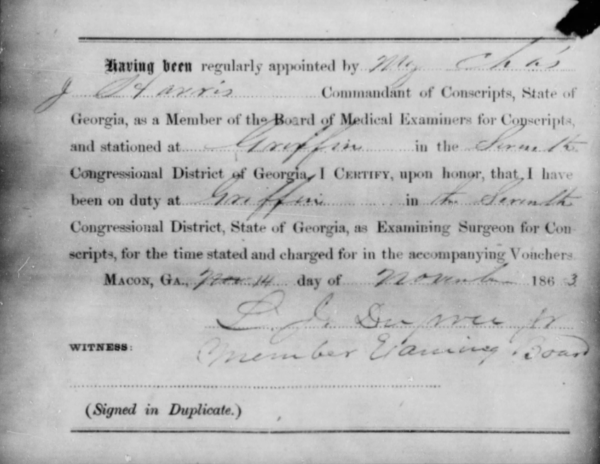 Having been regularly appointed by Maj Chas
J Harris Commandant of Conscripts, State of
Georgia, as a Member of the Board of Medical Examiners for Conscripts,
and stationed at Griffin in the Seventh
Congressional District of Georgia, I CERTIFY, upon honor, that I have
been on duty at Griffin in the Seventh
Congressional District, State of Georgia, as Examining Surgeon for Con-
scripts, for the time stated and charged for in the accompanying Vouchers.
MACON, GA., 14 day of November 1863
L. J.
WITNESS: Member Examining Board
(Signed in Duplicate.)